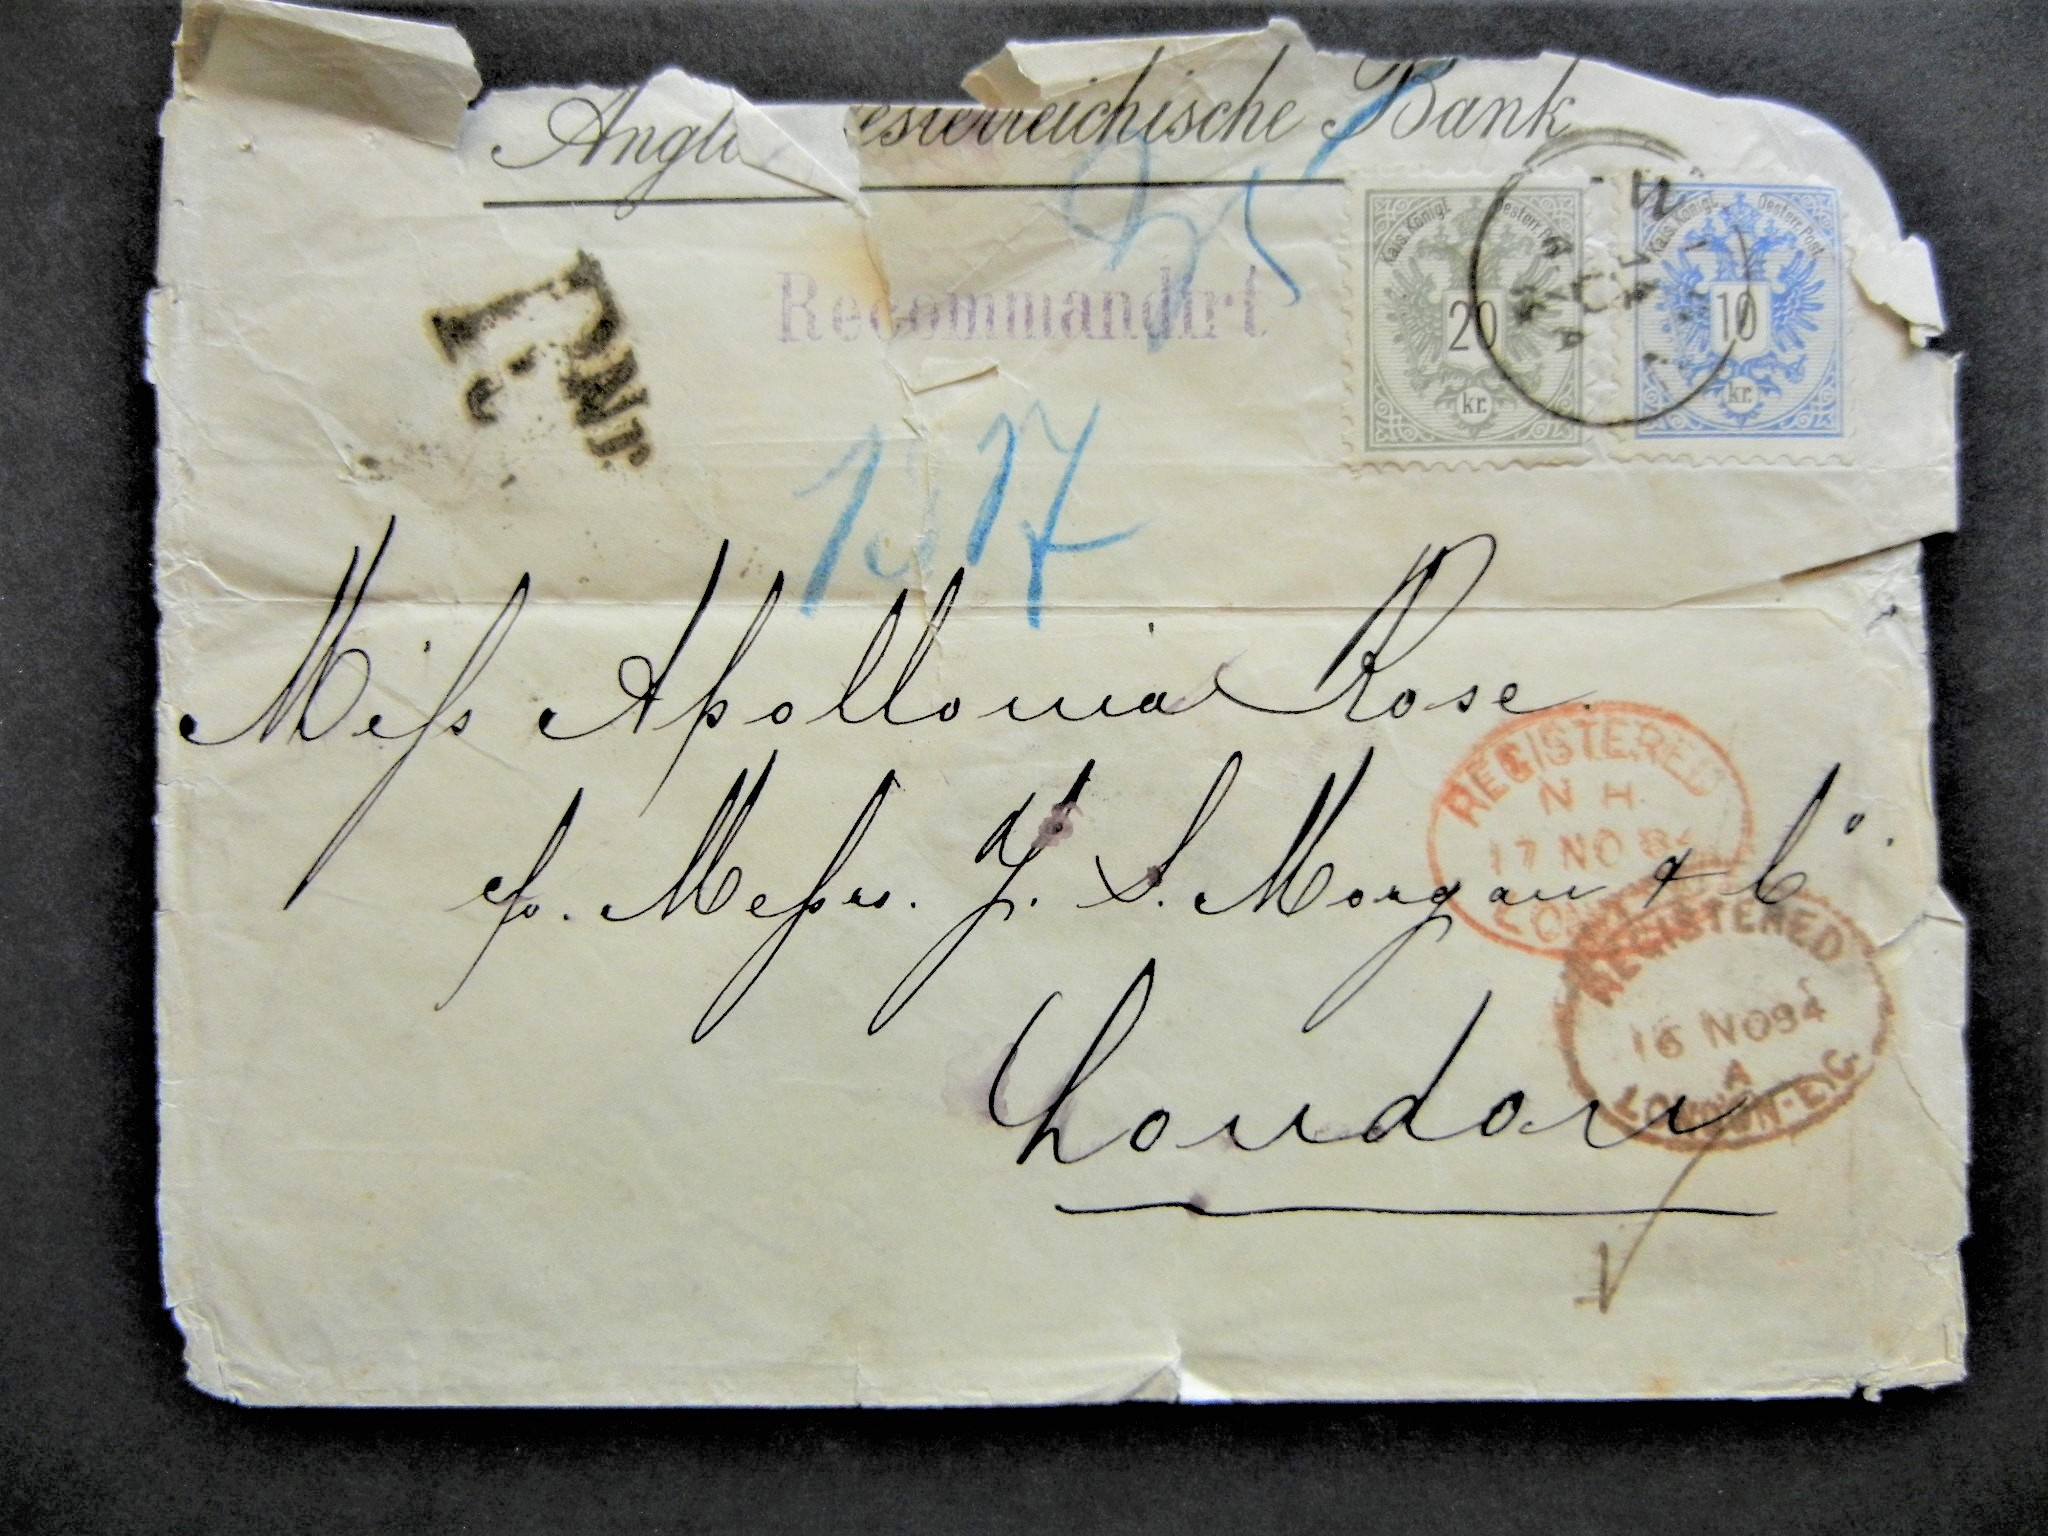 Anglo esterreichische Bank
Recommandirt
Kais. Königl. Oesterr. Post
20
kr.
Kais. Königl. Oesterr. Post
10
kr.
Nr.
Miss Apollonia Rose.
c/o. Messrs. J. S. Morgan & Co.
London
REGISTERED
N H
17 NO 84
LONDON
REGISTERED
16 NO 84
A
LONDON-E.C.